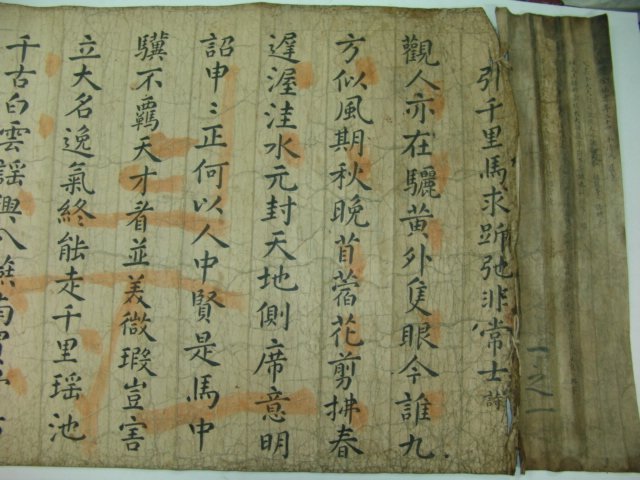 一之一
引千里馬求跅弛非常士詩
觀人亦在驪黃外隻眼今誰九
方似風期秋晚苜蓿花剪拂春
遲渥洼水元封天地側席意明
詔申〻正何以人中賢是馬中
驥不羈天才者並美微瑕豈害
立大名逸氣終能走千里瑶池
千古白雲謠興